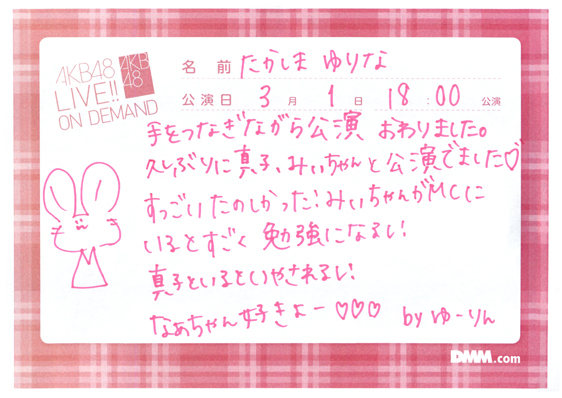 AKB48
LIVE!!
ON DEMAND
AKB
48
名前 たかしま ゆりな
公演日 3月 1日 18:00 公演
手をつなぎながら公演 おわりました。
久しぶりに真子、みぃちゃんと公演でました♡
すっごいたのしかった！みぃちゃんがMCに
いるとすごく勉強になるし！
真子といるといやされるし！
なぁちゃん好きよー♡♡♡ by ゆーりん
DMM.com